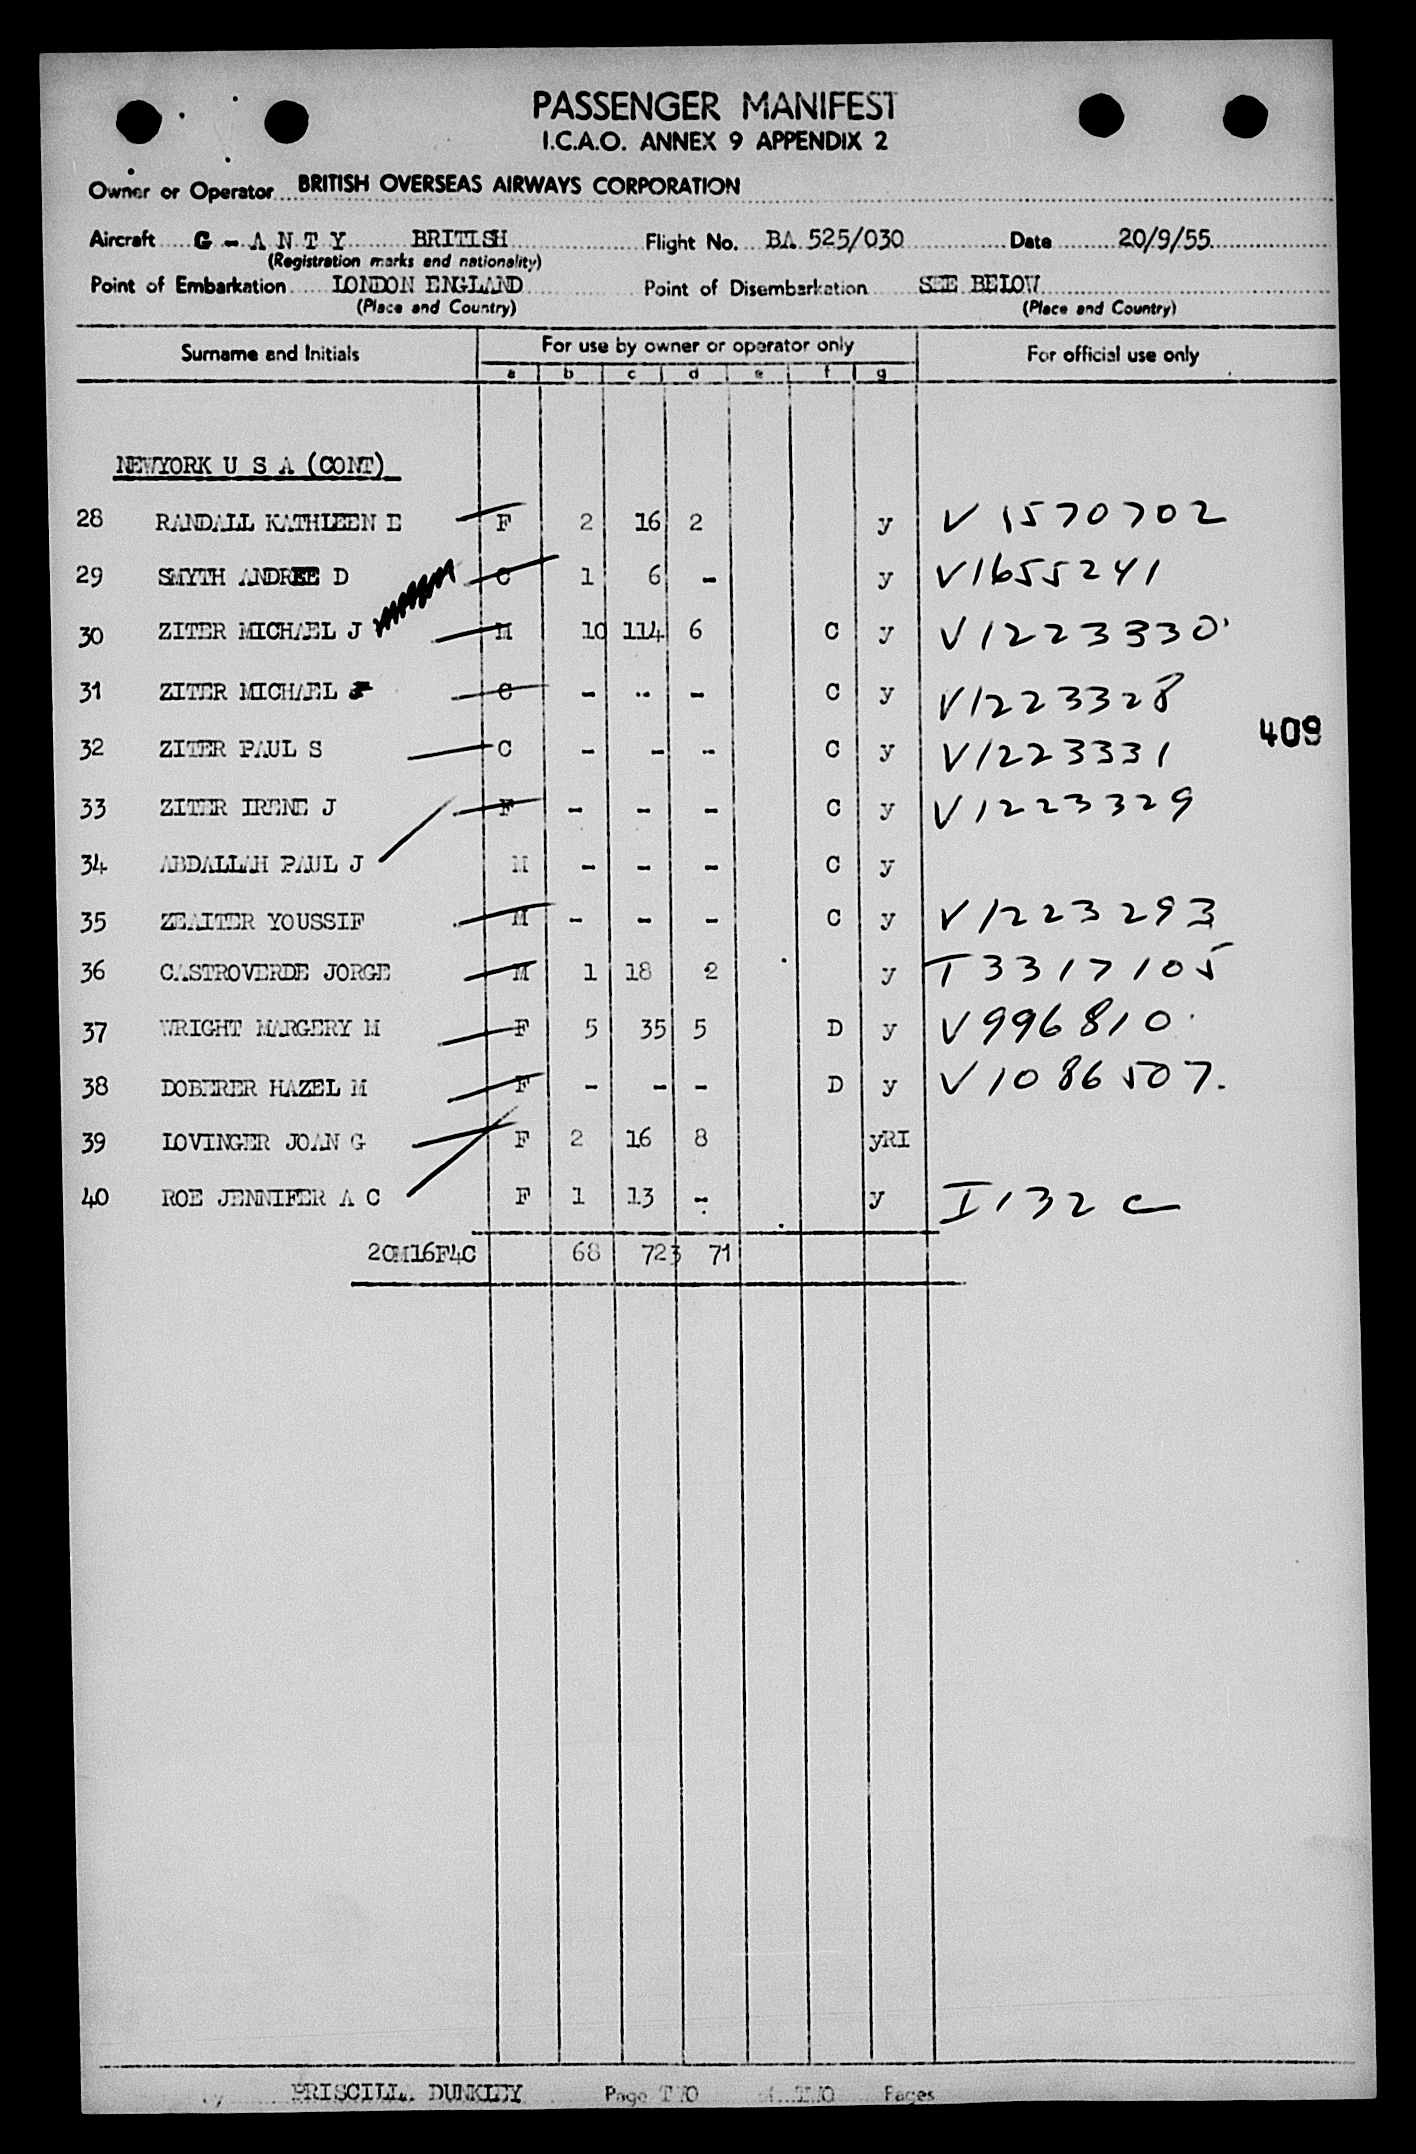 PASSENGER MANIFEST
I.C.A.O. ANNEX 9 APPENDIX 2
Owner or Operator BRITISH OVERSEAS AIRWAYS CORPORATION
Aircraft G - A N T Y BRITISH Flight No. BA 525/030 Date 20/9/55
(Registration marks and nationality)
Point of Embarkation LONDON ENGLAND Point of Disembarkation SEE BELOW
(Place and Country) (Place and Country)
Surname and Initials For use by owner or operator only For official use only
a b c d e f g
NEWYORK U S A (CONT)
28 RANDALL KATHLEEN E F 2 16 2 y V 1570702
29 SMYTH ANDREE D C 1 6 - y V1655241
30 ZITER MICHAEL J M 10 114 6 C y V1223330
31 ZITER MICHAEL C - - - C y V1223328
409
32 ZITER PAUL S C - - - C y V1223331
33 ZITER IRENE J F - - - C y V1223329
34 ABDALLAH PAUL J M - - - C y
35 ZEAITER YOUSSIF M - - - C y V1223293
36 CASTROVERDE JORGE M 1 18 2 y T3317105
37 WRIGHT MARGERY M F 5 35 5 D y V996810
38 DOBERER HAZEL M F - - - D y V1086507.
39 LOVINGER JOAN G F 2 16 8 yRI
40 ROE JENNIFER A C F 1 13 - y I132C
20M16F4C 68 723 71
PRISCILLA DUNKLEY Page TWO of TWO Pages